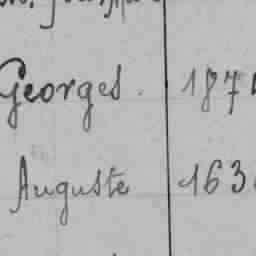 Georges. 187
Auguste 163